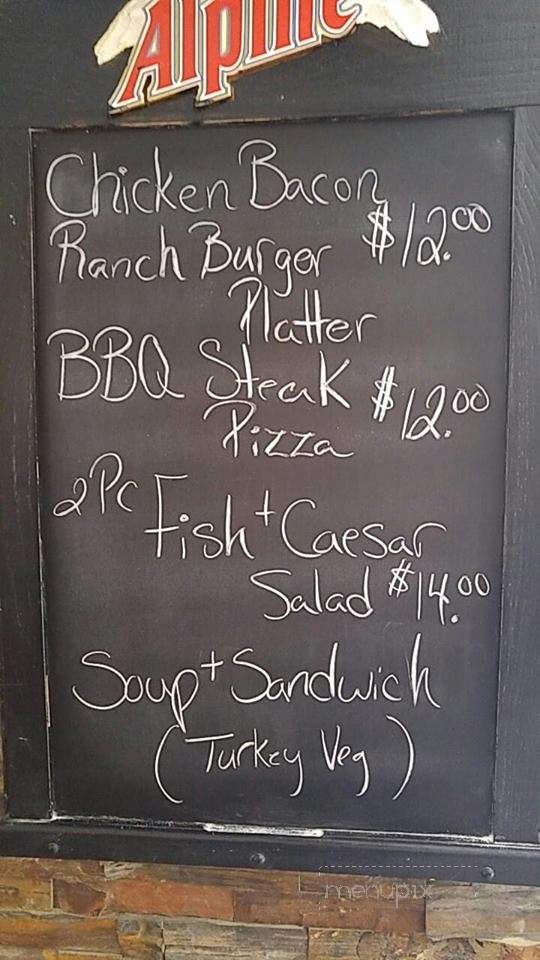 Alpine
Chicken Bacon
Ranch Burger $12.00
Platter
BBQ Steak $12.00
Pizza
2Pc Fish + Caesar
Salad $14.00
Soup + Sandwich
(Turkey Veg)
menupix